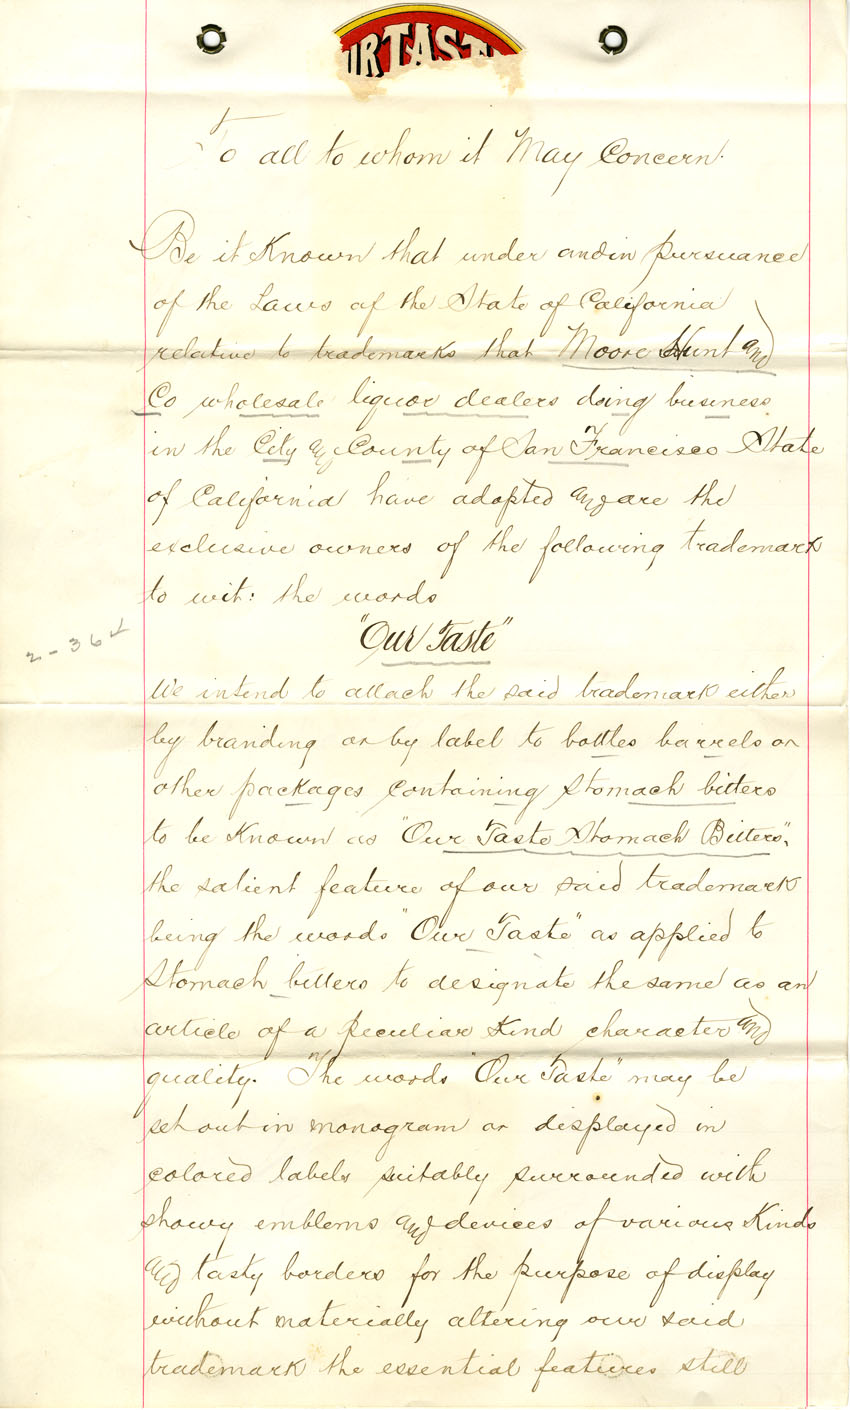 UR TAST
To all to whom it May Concern.
Be it Known that under and in pursuance
of the Laws of the State of California
relative to trademarks that Moore Hunt and
Co wholesale liquor dealers doing business
in the City and County of San Francisco State
of California have adopted and are the
exclusive owners of the following trademark
to wit: the words
"Our Taste"
2-364
We intend to attach the said trademark either
by branding or by label to bottles barrels or
other packages containing Stomach bitters
to be Known as "Our Taste Stomach Bitters",
the salient feature of our said trademark
being the words "Our Taste" as applied to
Stomach bitters to designate the same as an
article of a peculiar Kind character and
quality. The words "Our Taste" may be
set out in monogram or displayed in
colored labels suitably surrounded with
showy emblems and devices of various Kinds
and tasty borders for the purpose of display
without materially altering our said
trademark the essential features still